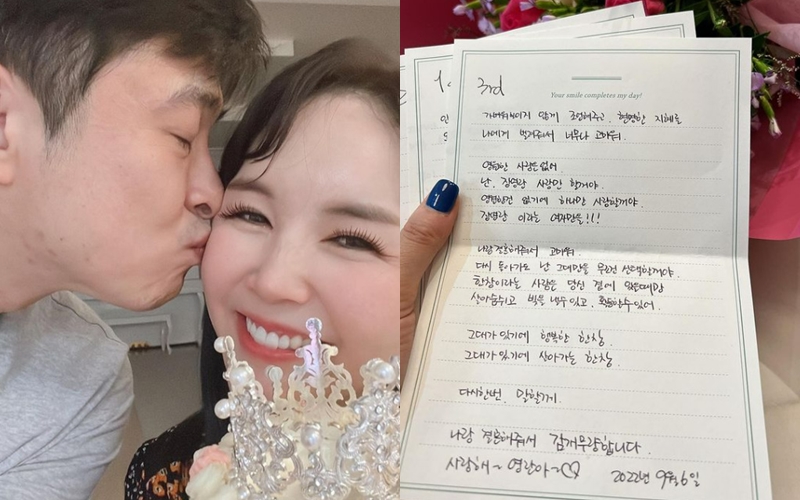 3rd
Your smile completes my day!
가벼워보이지 않게 조언해주고, 현명한 지혜로
나에게 벅겨줘서 너무나 고마워.
영원한 사랑은없어.
난, 장영란 사랑만 할거야.
영원한건 없기에 하나만 사랑할거야.
장영란 이라는 여자만을!!!
나랑결혼해줘서 고마워.
다시 돌아가도 난 그대만을 무조건 선택할거야.
한창이라는 사람은 당신 곁에 있을때만
살아숨쉬고 빛을 낼수 있고, 활동할수있어.
그대가 있기에 행복한 한창.
그대가 있기에 살아가는 한창.
다시한번, 말할게.
나랑 결혼해줘서 감개무량합니다.
사랑해~ 영란아~♡ 2022년 9월 6일